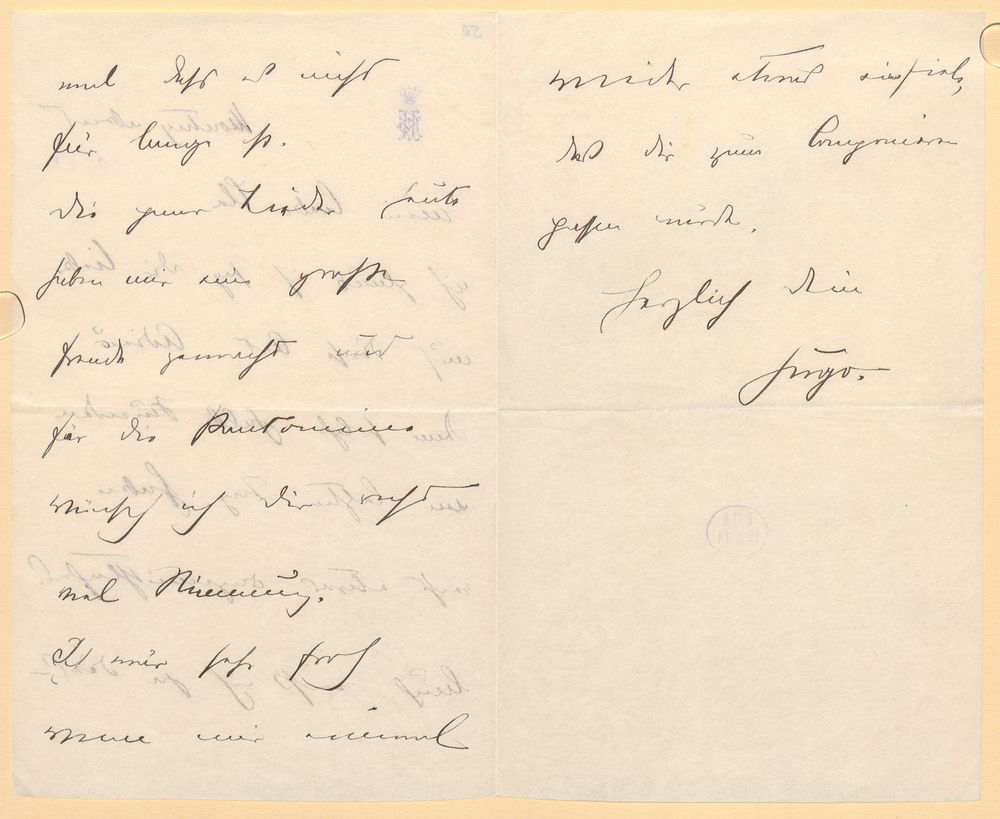 und dass es nicht
für lange ist.
die paar Lieder heute
haben mir eine grosse
freude gemacht und
für die Pantomime
wünsch ich dir recht
viel Stimmung.
Ich wär sehr froh
wenn mir einmal
wieder etwas einfiele,
das dir zum Componieren
passen würde.
Herzlich dein
Hugo.